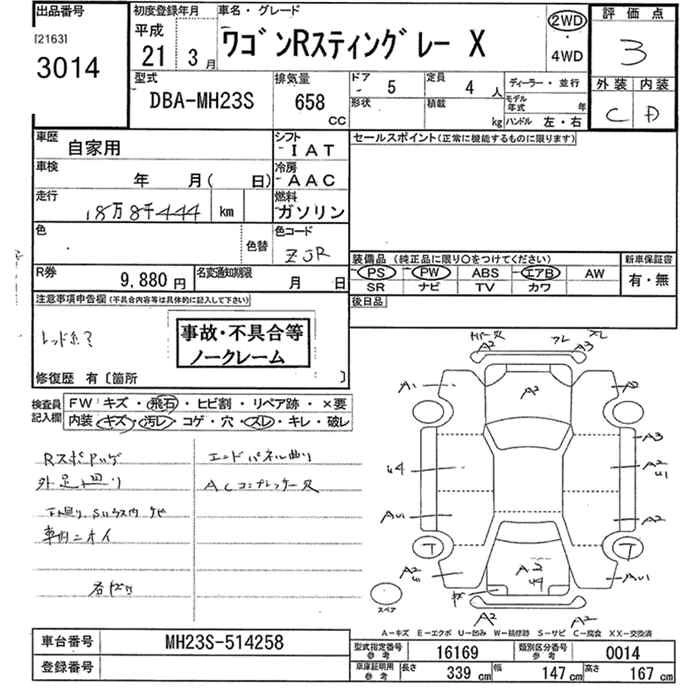 出品番号
[2163]
3014
初度登録年月
平成
21 3月
車名・グレード
ワゴンRスティングレー X
2WD
・
4WD
評価点
3
外装 内装
C D
型式
DBA-MH23S
排気量
658
CC
ドア 5
定員 4 人
ディーラー・並行
形状
積載 kg
モデル年式 年
ハンドル 左・右
車歴 自家用
シフト
IAT
セールスポイント(正常に機能するものに限ります)
車検 年 月( 日)
冷房
AAC
走行 18万8千444 km
燃料
ガソリン
色
色替
色コード
ZJR
装備品 (純正品に限り〇をつけてください)
新車保証書
PS PW ABS エアB AW
有・無
SR ナビ TV カワ
R券 9,880円
名変通知期限 月 日
後日品
注意事項申告欄(不具合内容等は具体的に記入して下さい)
事故・不具合等
ノークレーム
修復歴 有〔箇所 〕
検査員
記入欄
FW キズ・飛石・ヒビ割・リペア跡・×要
内装 キズ・汚レ・コゲ・穴・ズレ・キレ・破レ
エンドパネル曲り
外足廻り
ACコンプレッサー又
車内ニオイ
A2
A3
A1
A2
A2
A3
U4
A2
U1
AU1
A2
T
T
A2
A2
U4
AU1
スペア
A2
A2
A-キズ E-エクボ U-凹み W-補修跡 S-サビ C-腐食 XX-交換済
車台番号 MH23S-514258
登録番号
型式指定番号
参考
16169
類別区分番号
参考
0014
車庫証明用
参考
長さ 339 cm
幅 147 cm
高さ 167 cm